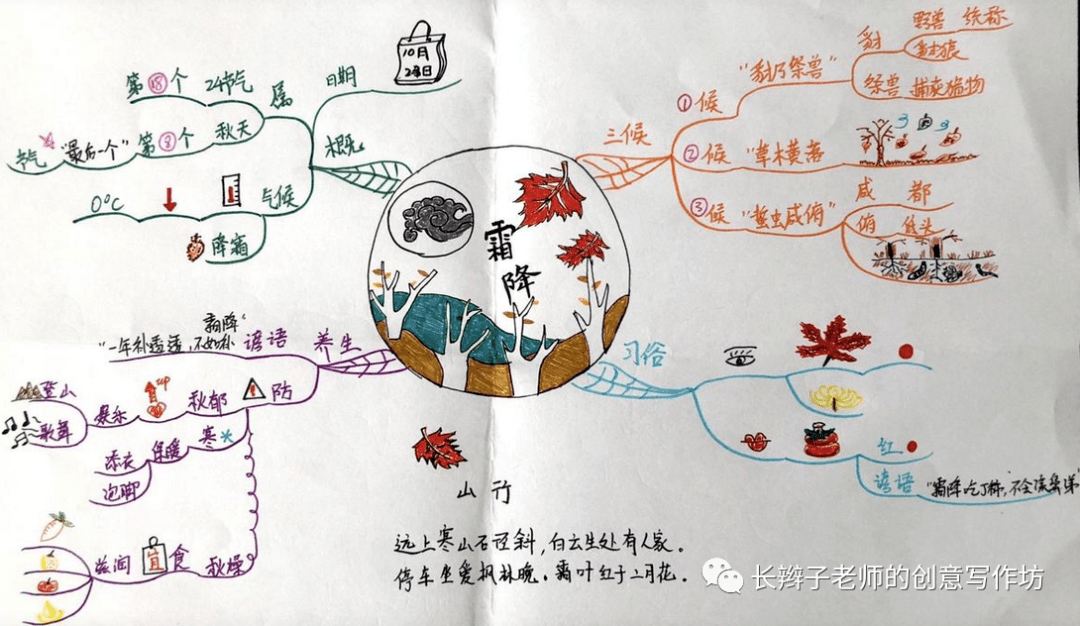 霜降
概况
日期
10月
23日
属
24节气
第⑱个
秋天
第⑱个
"最后一个"
节气
气候
0°C
降霜
三候
①候
"豺乃祭兽"
豺
野兽 统称
豺狼
祭兽 捕获猎物
②候
"草木黄落"
③候
"蜇虫咸俯"
咸 都
俯 低头
习俗
红
谚语
"霜降吃丁柿,不会流鼻涕"
养生
谚语
"一年补透透,不如补霜降"
防
秋郁
UP
娱乐
登山
歌舞
寒
保暖
添衣
泡脚
秋燥
食
宜
滋润
山行
远上寒山石径斜,白云生处有人家。
停车坐爱枫林晚,霜叶红于二月花。
长辫子老师的创意写作坊